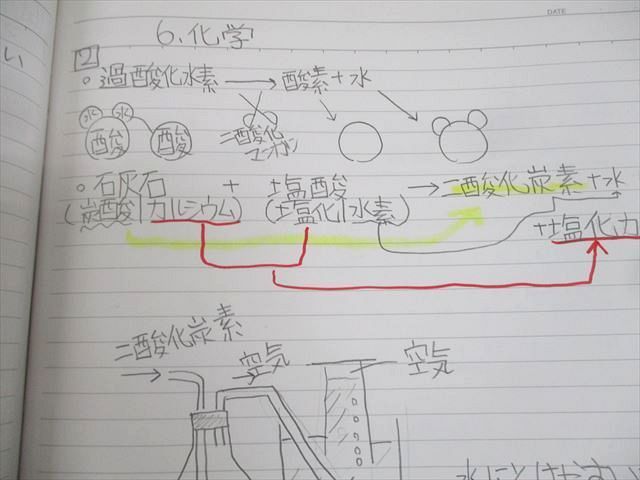 DATE
い
6.化学
2
○過酸化水素 → 酸素+水
水 水
酸 酸
二酸化マンガン
○石灰石 + 塩酸 → 二酸化炭素+水
(炭酸|カルシウム) (塩化|水素)
+塩化カ
二酸化炭素
空気
空気